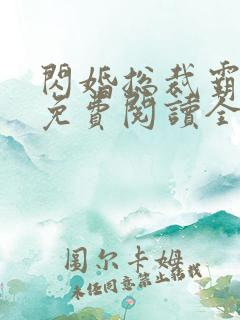 閃婚总裁霸
免費閱讀全
圖尔卡姆
未经同意禁止转载